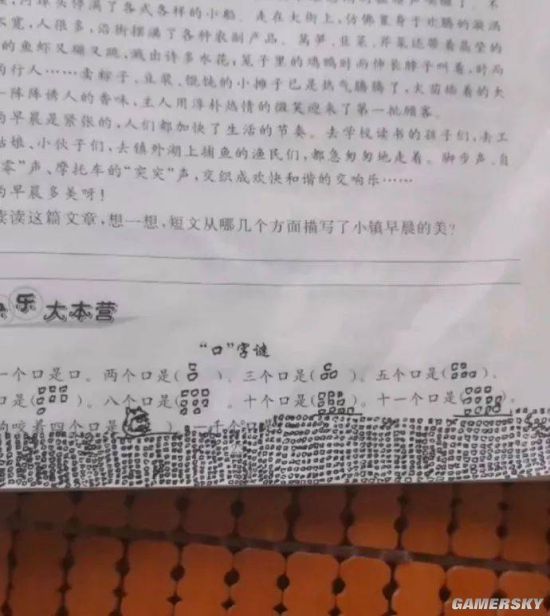 停满了各式各样的小船。走在大街上,仿佛置身于欢腾的海洋
不宽,人很多,沿街摆满了各种农副产品。莴笋、韭菜、芹菜还带着晶莹的
的鱼虾又蹦又跳,溅出许多水花;笼子里的鸡鸭时而伸长脖子叫着,时而
行人……卖粽子、豆浆、馄饨的小摊子已是热气腾腾了,大
一阵阵诱人的香味,主人用淳朴热情的微笑迎来了第一批顾客。
早晨是紧张的,人们都加快了生活的节奏。去学校读书的孩子们、去工
姑娘、小伙子们、去镇外湖上捕鱼的渔民们,都急匆匆地走着。脚步声、自
零”声、摩托车的“突突”声,交织成欢快和谐的交响乐……
早晨多美呀!
读读这篇文章,想一想,短文从哪几个方面描写了小镇早晨的美?
乐大本营
“口”字谜
一个口是口。两个口是( )、三个口是( )、五个口是( )、
口是( )、八个口是( )、十个口是( )、十一个口是( )。
狗咬着四个口是( )、一千个口
GAMERSKY